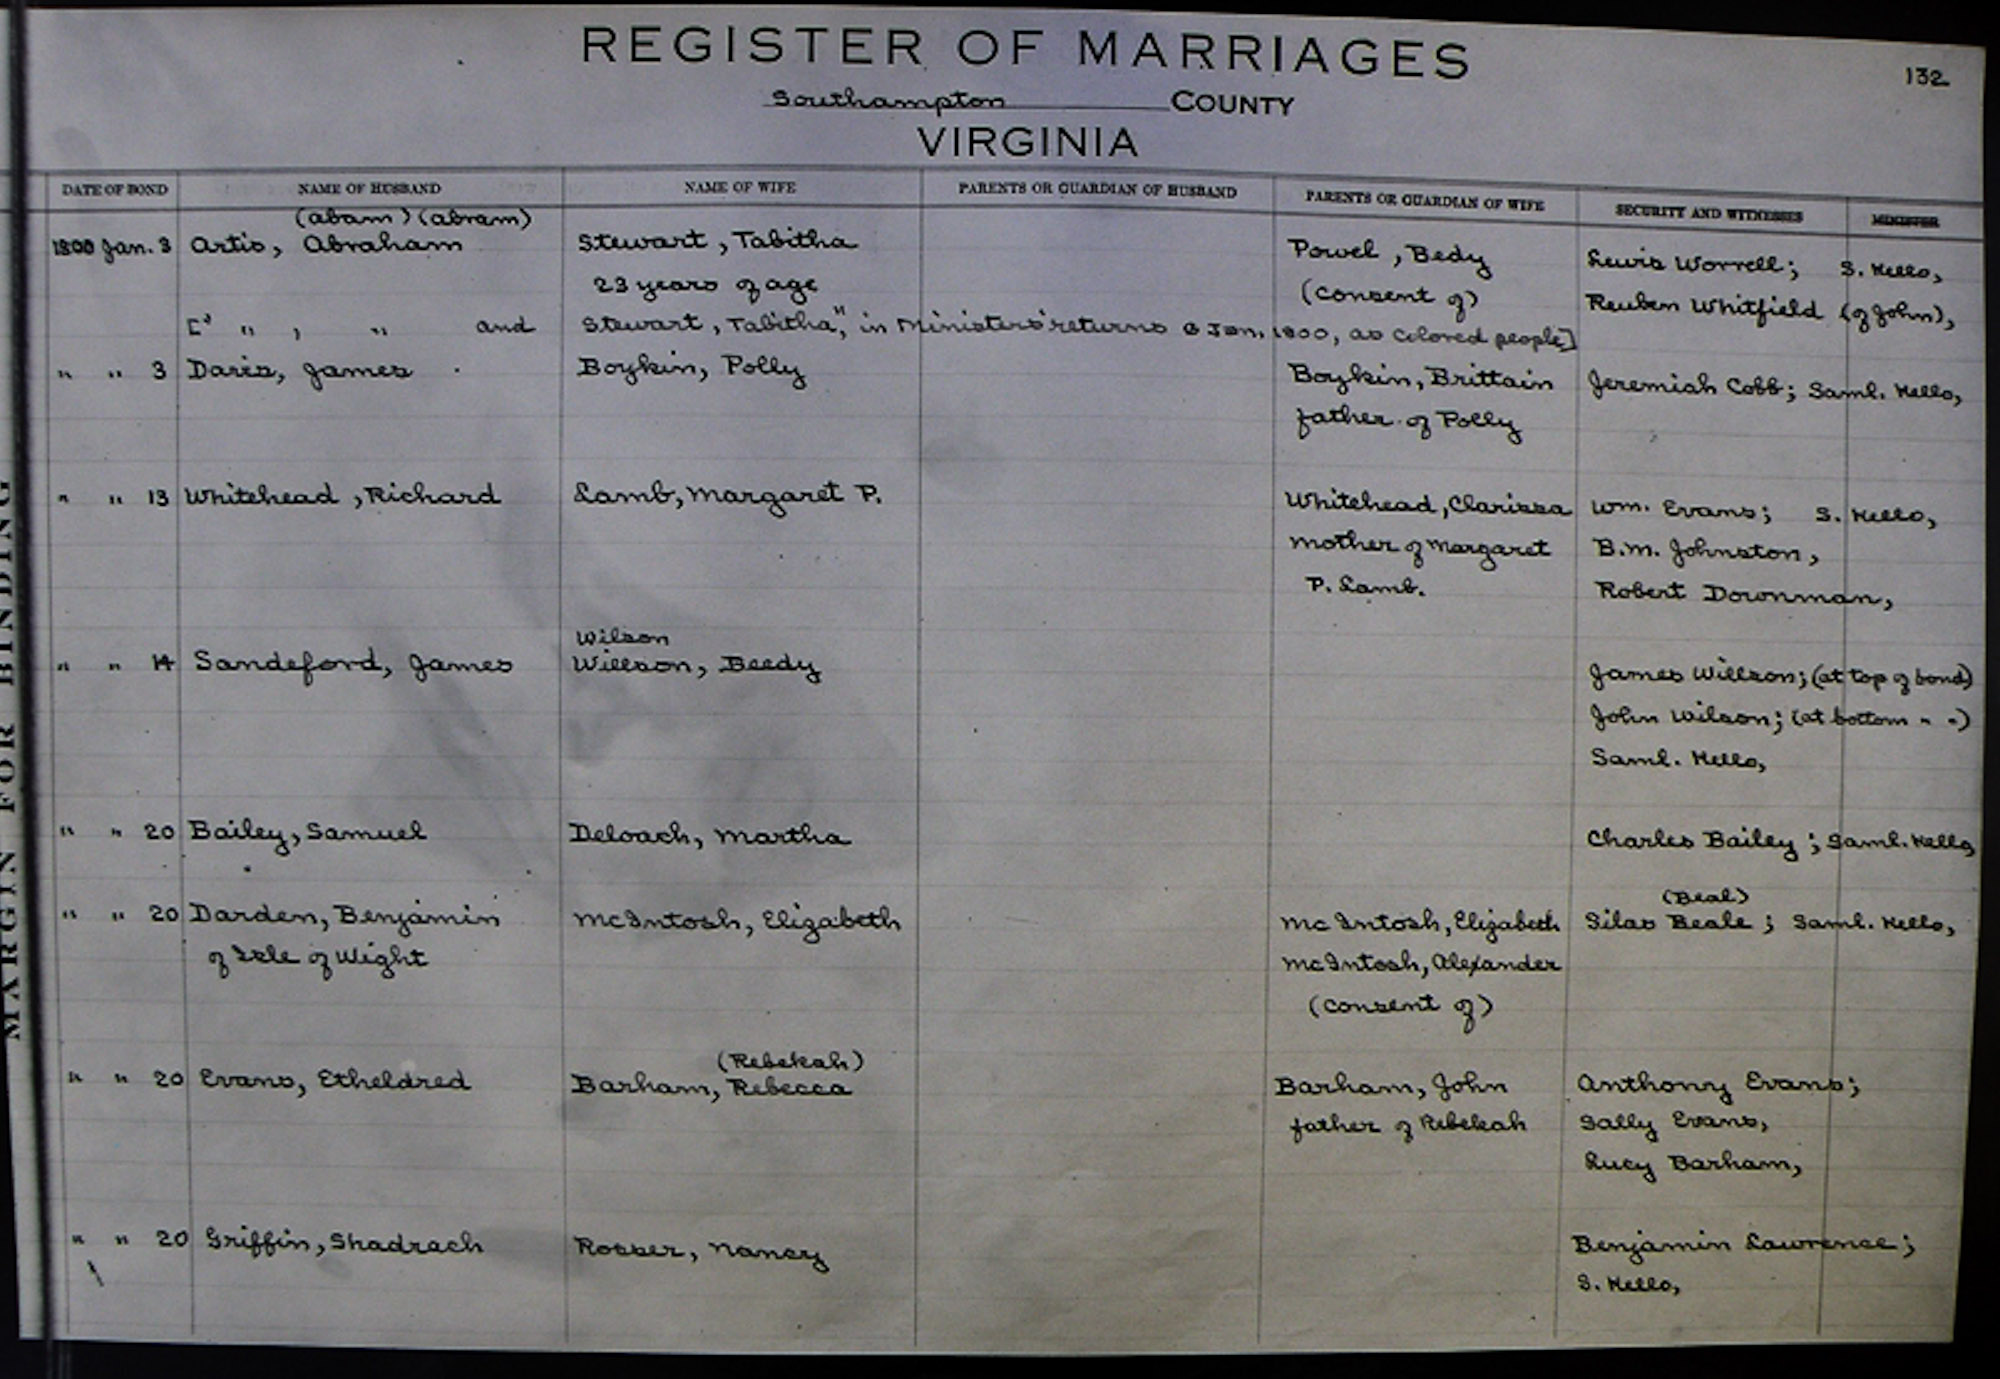 REGISTER OF MARRIAGES
132
Southampton COUNTY
VIRGINIA
DATE OF BOND NAME OF HUSBAND NAME OF WIFE PARENTS OR GUARDIAN OF HUSBAND PARENTS OR GUARDIAN OF WIFE SECURITY AND WITNESSES MINISTER
(Abam) (Abram)
1800 Jan. 3 Artis, Abraham Stewart, Tabitha Powel, Bedy Lewis Worrell; S. Kello,
23 years of age (consent of) Reuben Whitfield (of John),
[" " , " and Stewart, Tabitha", in Ministers' returns 8 Jan. 1800, as colored people]
" " 3 Davis, James Boykin, Polly Boykin, Brittain Jeremiah Cobb; Saml. Kello,
father of Polly
" " 13 Whitehead, Richard Lamb, Margaret P. Whitehead, Clarissa Wm. Evans; S. Kello,
mother of Margaret B.M. Johnston,
P. Lamb. Robert Downman,
Wilson
" " 14 Sandeford, James Willson, Beedy James Willson; (at top of bond)
John Wilson; (at bottom " ")
Saml. Kello,
" " 20 Bailey, Samuel Deloach, Martha Charles Bailey; Saml. Kello,
(Beal)
" " 20 Darden, Benjamin McIntosh, Elizabeth McIntosh, Elizabeth Silas Beale; Saml. Kello,
of Isle of Wight McIntosh, Alexander
(consent of)
(Rebekah)
" " 20 Evans, Etheldred Barham, Rebecca Barham, John Anthony Evans;
father of Rebekah Sally Evans,
Lucy Barham,
" " 20 Griffin, Shadrach Rosser, Nancy Benjamin Lawrence;
S. Kello,
MARGIN FOR BINDING